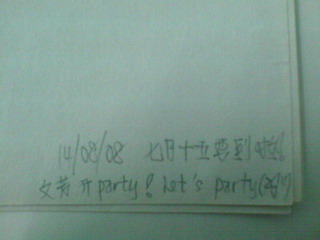 14/08/08 七月十五要到啦!
开party! Let's party